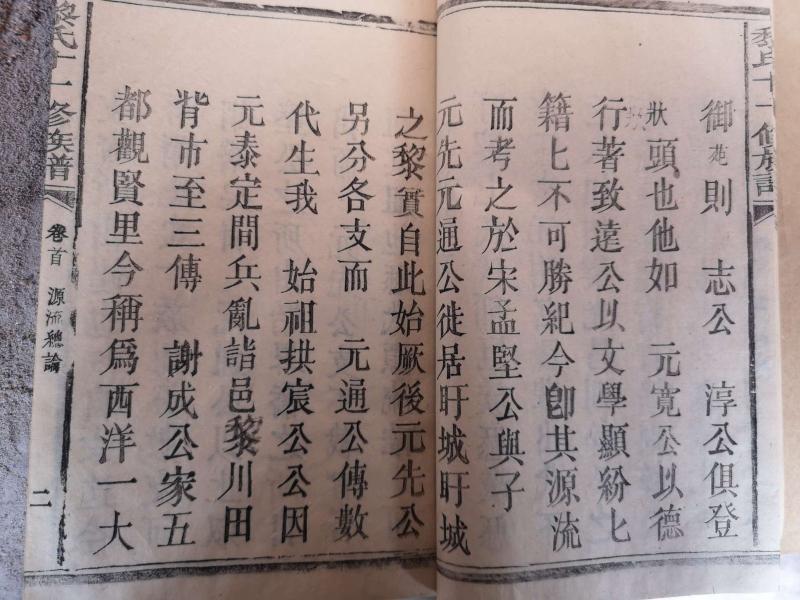 御苑則　志公　淳公俱登
狀頭也他如　元寬公以德
行著致遠公以文學顯紛匕
籍匕不可勝紀今卽其源流
而考之於宋孟堅公與子
元先元通公徙居盱城盱城
之黎實自此始厥後元先公
另分各支而　元通公傳數
代生我　始祖拱宸公公因
元泰定間兵亂詣邑黎川田
背市至三傳　謝成公家五
都觀賢里今稱爲西洋一大
黎氏十一修族譜
卷首　源流總論
二